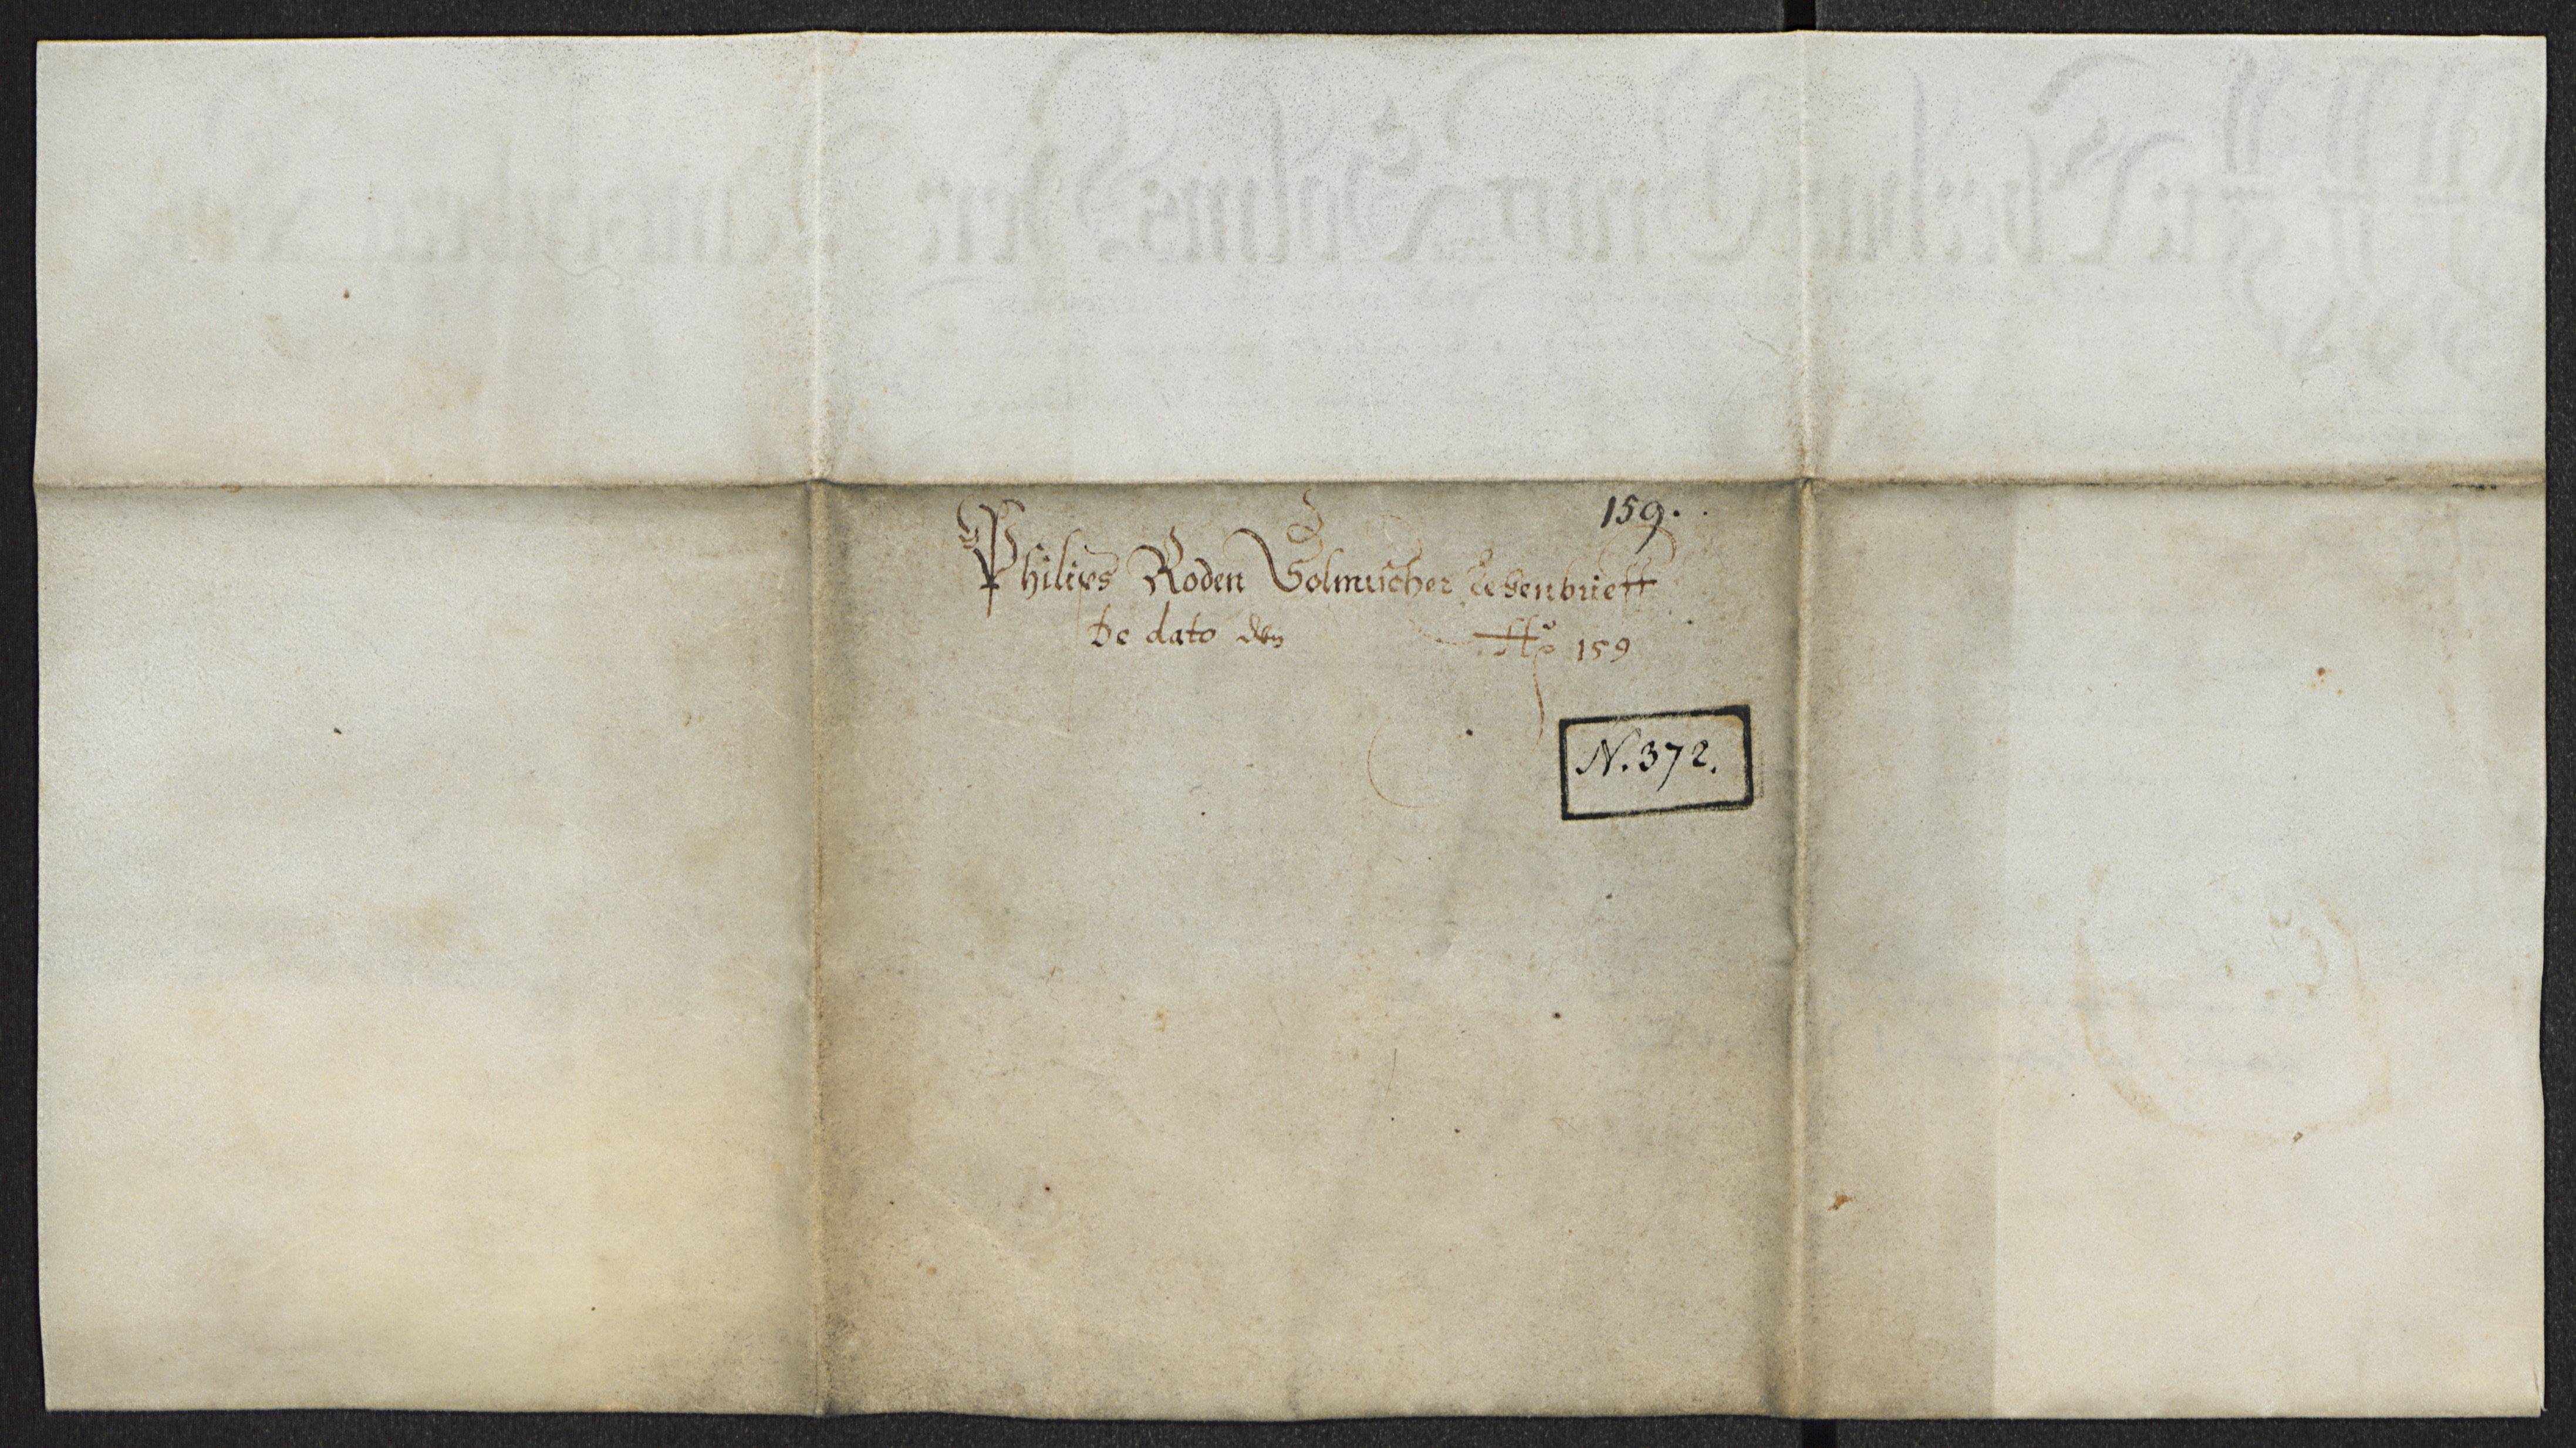 159.
Philips Roden Solmischer Lehenbrieff
de dato den Aō 159
N. 372.